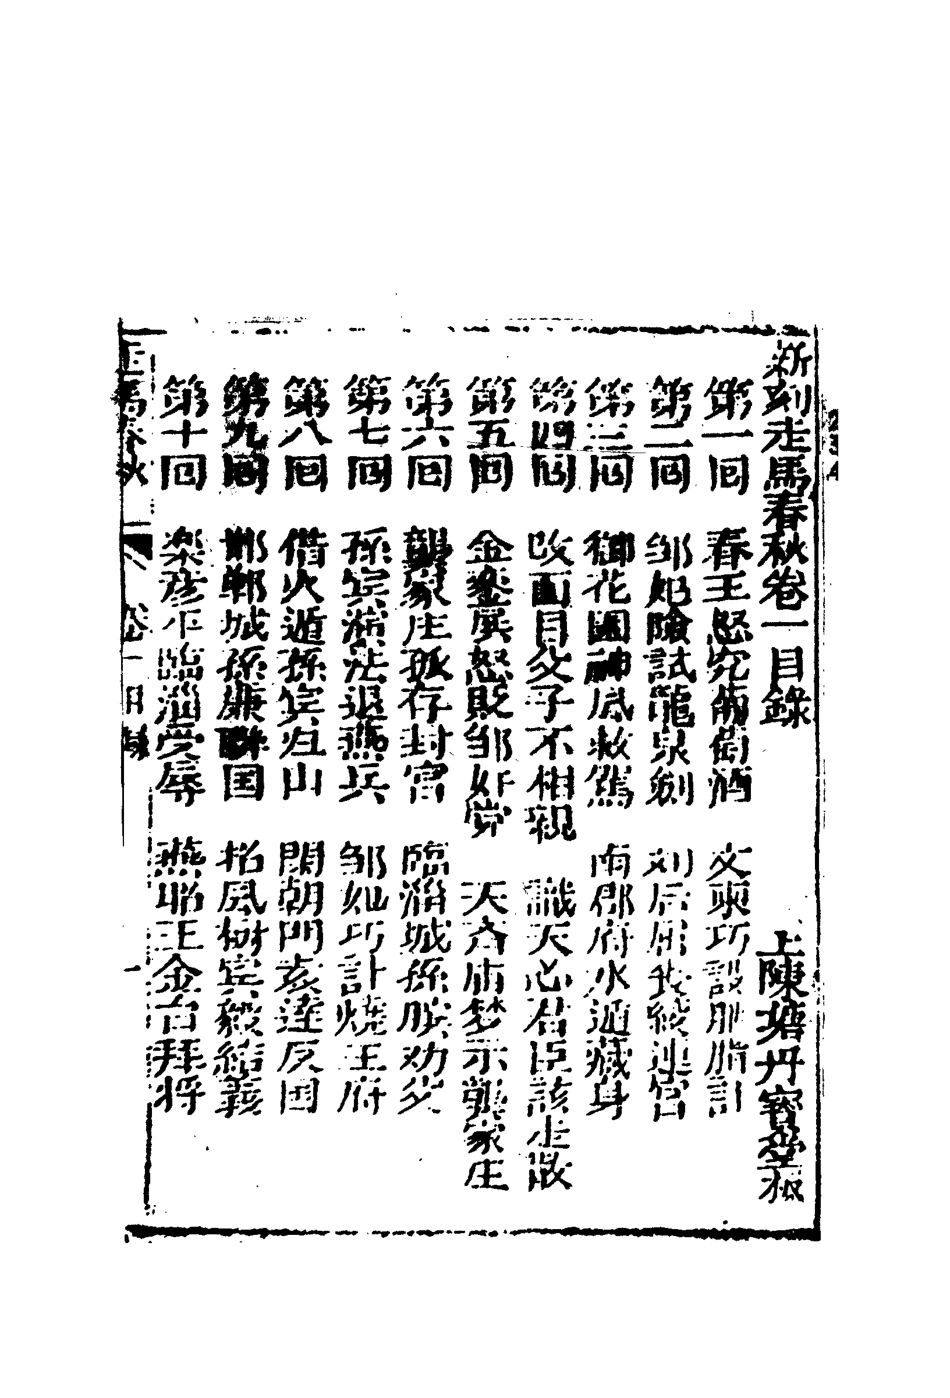 新刻走馬春秋卷一目錄 上陳塘丹寶堂板
第一回 春王怒究葡萄酒 文東巧設胭脂計
第二回 邹妃險試龍泉劍 刘后屈喪綾連宫
第三回 御花園神风救駕 南郡府水遁藏身
第四回 改面目父子不相親 識天心君臣該走散
第五回 金銮展怒貶邹奸党 天齐庙梦示龔家庄
第六回 龔家庄孤存封官 臨淄城孫膑劝父
第七回 孫宾演法退燕兵 邹妃巧計燒王府
第八回 借火遁孫宾归山 閙朝門袁達反国
第九回 邯鄲城孫廉聯国 招风樹宾毅結義
第十回 楽彦平臨淄受辱 燕昭王金台拜将
走馬春秋 卷一目録 一